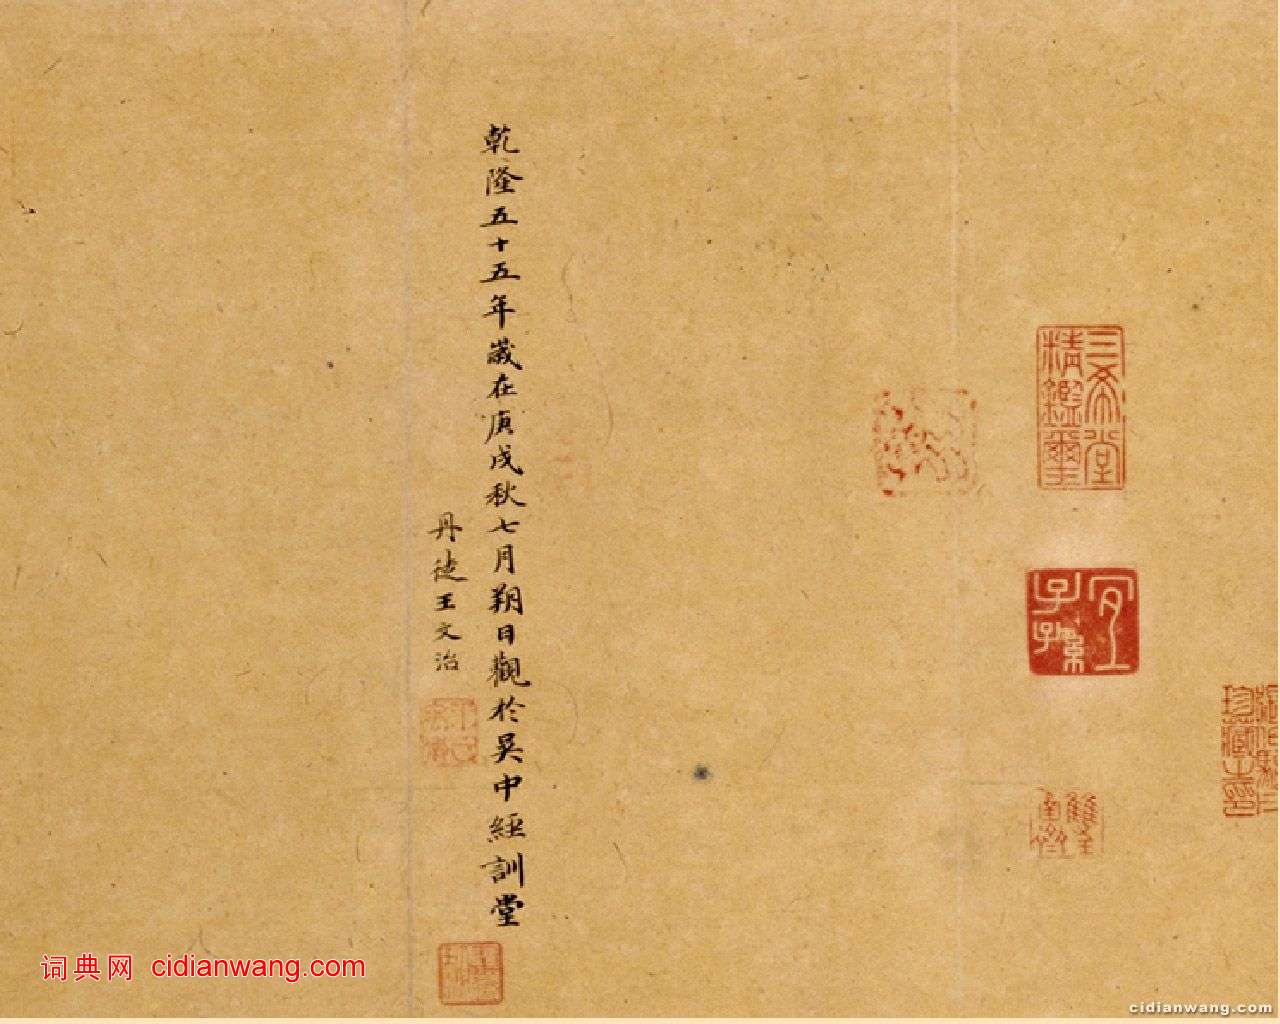 三希堂
精鑑璽
宜
子孫
乾隆五十五年歲在庚戌秋七月朔日觀於吳中經訓堂
丹徒王文治
词典网 cidianwang.com
cidianwang.com